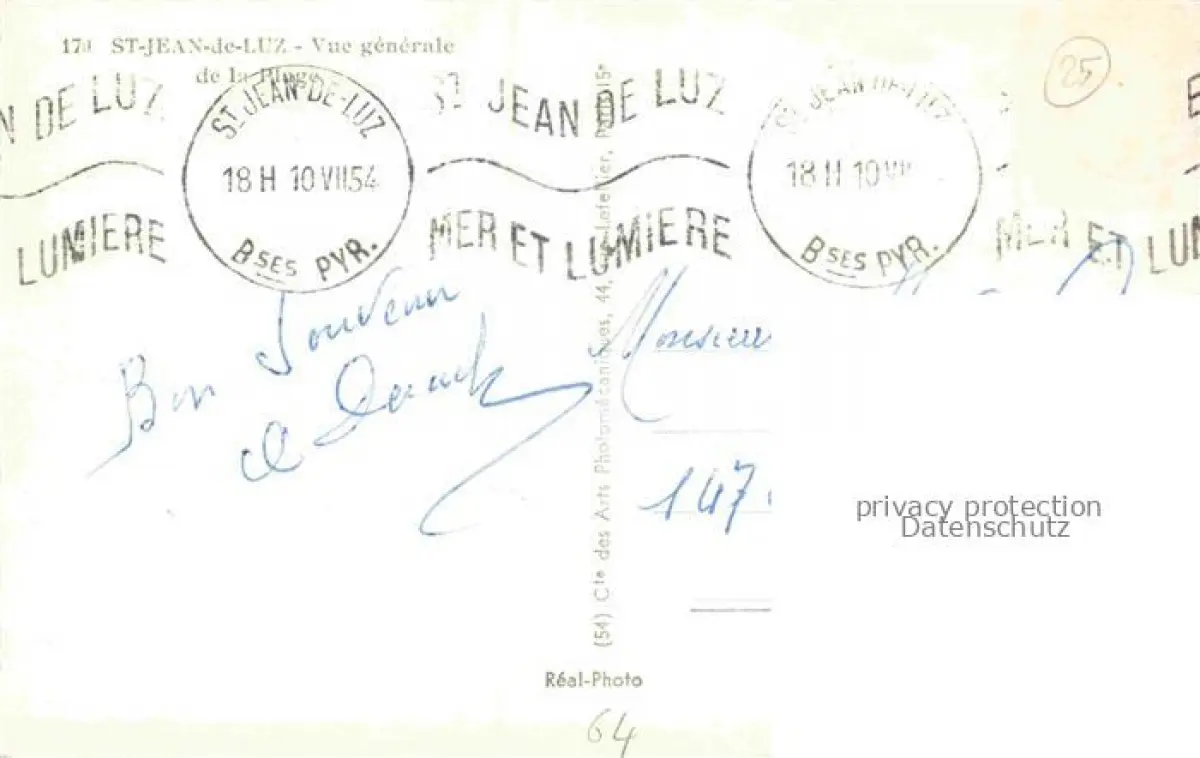 ST-JEAN-de-LUZ - Vue générale
de la Plage
25
N DE LUZ
ST JEAN-DE-LUZ
18 H 10 VII 54
Bses PYR.
ST JEAN DE LUZ
ST JEAN-DE-LUZ
18 H 10 VII
Bses PYR.
LUMIERE
MER ET LUMIERE
MER ET LUM
Bon Souvenir
Monsieur
147
(54) Cie des Arts Photomécaniques, 44,
Réal-Photo
64
privacy protection
Datenschutz